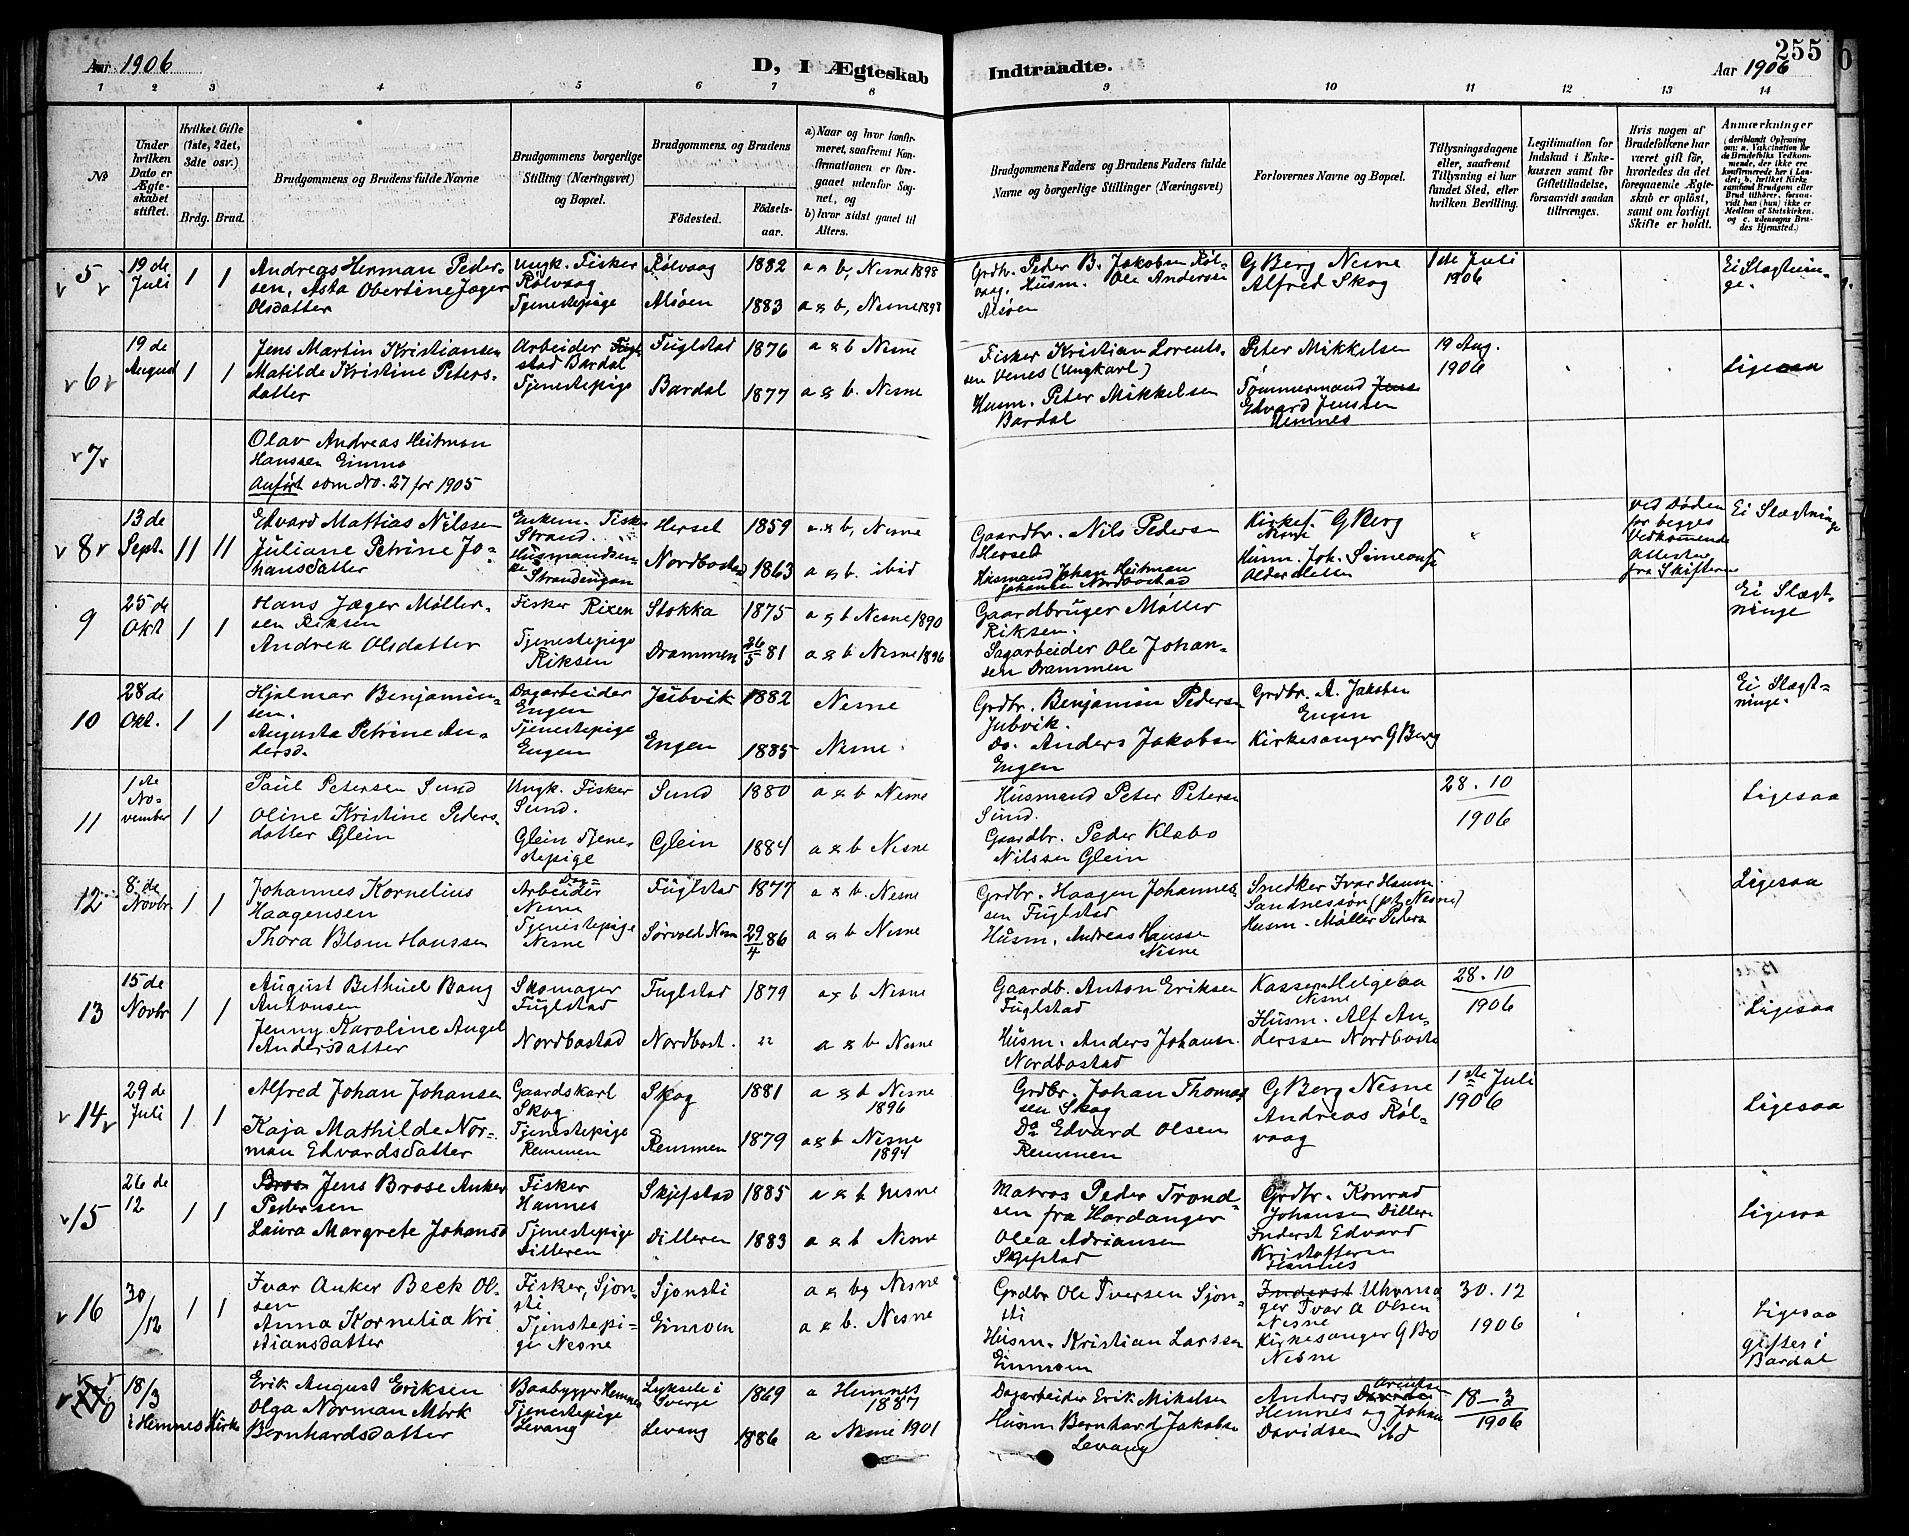 Aar 1906
D, I Ægteskab
Indtraadte.
255
Aar 1906
1 2 3 4 5 6 7 8 9 10 11 12 13 14
No
Under hvilken Dato er Ægteskabet stiftet.
Hvilket Gifte (1ste, 2det, 3die osv.)
Brdg. Brud.
Brudgommens og Brudens fulde Navne
Brudgommens borgerlige Stilling (Næringsvei) og Bopæl.
Brudgommens og Brudens
Födested.
Födsels-aar.
a) Naar og hvor konfirmeret, saafremt Konfirmationen er foregaaet udenfor Sognet, og
b) hvor sidst gaaet til Alters.
Brudgommens Faders og Brudens Faders fulde Navne og borgerlige Stillinger (Næringsvei)
Forlovernes Navne og Bopæl.
Tillysningsdagene eller, saafremt Tillysning ei har fundet Sted, efter hvilken Bevilling.
Legitimation for Indskud i Enkekassen samt for Giftetilladelse, forsaavidt saadan tiltrænges.
Hvis nogen af Brudefolkene har været gift før, hvorledes da det foregaaende Ægteskab er oplöst, samt om lovligt Skifte er holdt.
Anmærkninger
5
19 de Juli
1 1
Andreas Herman Peder-
sen, Asta Obertine Jæger
Olsdatter
Ungk. Fisker
Rølvaag
Tjenestepige
Rølvaag
Alsøen
1882
1883
a & b, Nesne 1898
a & b, Nesne 1898
Grdbr. Peder B. Jakobsen Røl-
vaag. Husm. Ole Andersen
Alsøen
G Berg Nesne
Alfred Skog
1 de Juli
1906
Ei Slagtnin-
ge.
6
19 de August
1 1
Jens Martin Kristiansen
Matilde Kristine Peters-
datter
Arbeider Fugl-
stad Bardal
Tjenestepige
Fuglstad
Bardal
1876
1877
a & b Nesne
a & b. Nesne
Fisker Kristian Lorents-
sen Venes (Ungkarl)
Husm. Peter Mikkelsen
Bardal
Peter Mikkelsen
Tømmermand Jens
Edvard Jenssen
Hemnes
19 Aug.
1906
Ligesaa
7
Olav Andreas Heitman
Hanssen Einmo
Anført som No. 27 for 1905
8
13 de Sept.
11 11
Edvard Mattias Nilssen
Juliane Petrine Jo-
hansdatter
Enkem. Fisker
Strand.
Strandengan
Herset
Nordbostad
1859
1863
a & b, Nesne
a & b. ibid
Gaardbr. Nils Pedersen
Herset
Husmand Johan Heitman
Johansen Nordbostad
Kirkes. G Berg
Nesne
Husm. Joh. Simeonsen
Alderslette
ved Døden
for begges
Vedkommende
Attester
fra Skifteren
Ei Slægtninge
9
25 de Okt
1 1
Hans Jæger Møller-
sen Riksen
Andrea Olsdatter
Fisker Rixen
Tjenestepige
Riksen
Stokka
Drammen
1875
26/5 81
a & b Nesne 1890
a & b Nesne 1896
Gaardbruger Møller
Riksen.
Sagarbeider Ole Johan-
sen Drammen
Ei Slægt-
ninge
10
28 de Okt.
1 1
Hjalmar Benjamin-
sen.
Augusta Petrine An-
dersd.
Dagarbeider
Engen
Tjenestepige
Engen
Jubvik
Engen
1882
1885
Nesne
Nesne.
Grdbr. Benjamin Pedersen
Jubvik.
Do. Anders Jakobsen
Engen
Grdbr. A. Jakobsen
Engen
Kirkesanger G Berg
Ei Slægt-
ninge.
11
1ste No-
vember
1 1
Paul Petersen Sund
Oline Kristine Peders-
datter Glein
Ungk. Fisker
Sund.
Glein Tjene-
stepige
Sund
Glein
1880
1884
a & b Nesne
a & b Nesne
Husmand Peter Petersen
Sund.
Gaardbr. Peder Klæbo
Nilssen Glein
28. 10
1906
Ligesaa
12
8 de Novbr
1 1
Johannes Kornelius
Haagensen
Thora Blom Hanssen
Dag-
Arbeider
Nesne
Tjenestepige
Nesne
Fuglstad
Sørvold Nesne
1877
29/4 86
a & b. Nesne
a & b Nesne
Grdbr. Haagen Johannes-
sen Fuglstad
Husm. Andreas Hanssen
Nesne
Snedker Ivar Hansen
Sandnessøen (pt. Nesne)
Husm. Møller Peders
Ligesaa
13
15 de Novbr
1 1
August Bethuel Bang
Antonsen
Jenny Karoline Angel
Andersdatter
Skomager
Fuglstad
Nordbostad
Fuglstad
Nordbost.
1879
"
a & b Nesne
a & b. Nesne
Gaardb. Anton Eriksen
Fuglstad
Husm. Anders Johansen
Nordbostad
Kasser Helgesaa
Nesne
Husm. Alf An-
derssen Nordbosta
28. 10
1906
Ligesaa
14
29 de Juli
1 1
Alfred Johan Johansen
Kaja Mathilde Nor-
man Edvardsdatter
Gaardskarl
Skog
Tjenestepige
Remmen
Skog
Remmen
1881
1879
a & b Nesne
1896
a & b Nesne
1894
Grdbr. Johan Thomas-
sen Skog
Do Edvard Olsen
Remmen
G Berg Nesne
Andreas Røl-
vaag
1ste Juli
1906
Ligesaa
15
26 de
12
1 1
Jens Brose Anker
Pedersen
Laura Margrete Johansd
Fisker
Hannes
Tjenestepige
Dilleren
Skjefstad
Dilleren
1885
1883
a & b Nesne
a & b Nesne
Matros Peder Trond-
sen fra Hardanger
Olea Adriansen
Skjefstad
Grdbr. Konrad
Johansen Dilleren
Inderst Edvard
Kristoffersen
Hannes
Ligesaa
16
30/12
1 1
Ivar Anker Beck Ol-
sen
Anna Kornelia Kri
stiansdatter
Fisker, Sjon-
sti
Tjenstepi-
ge Nesne
Sjonsti
Einmoen
a & b, Nesne
a & b. Nesne
Grdbr Ole Iversen Sjon-
sti
Husm. Kristian Larssen
Einmoen
Inderst Uhrma-
ger Ivar A Olsen
Nesne
Kirkesanger G Berg
Nesne
30. 12
1906
Ligesaa
giftes i
Bardal
18/3
i Hemnes Kirke
Erik August Eriksen
Olga Norman Mørk
Bernhardsdatter
Baadbygger Hemnes
Tjenestepige
Levang
Lyksele i
Sverge
Levang
1869
1886
a Hemnes
1887
a Nesne 1901
Dagarbeider Erik Mikelsen
Husm Bernhard Jakobsen
Levang
Anders Arentsen
Hemnes og Johan
Davidsen ibd
18 - 3
1906